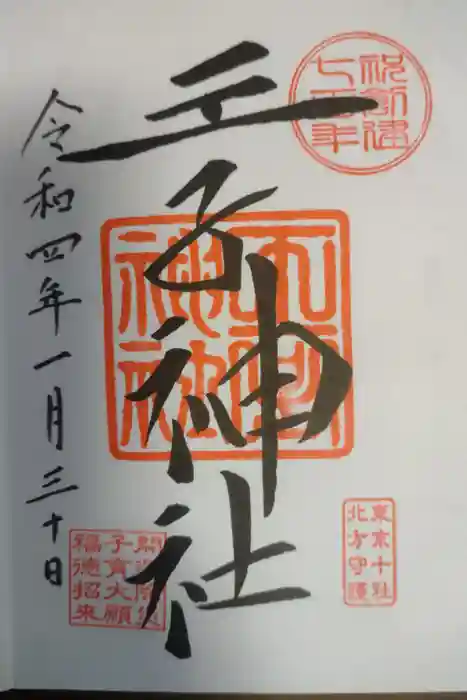 祝創建
七百年
王子神社
王子
神社
東京十社
北方守護
子育大願
福徳招来
令和四年一月三十日